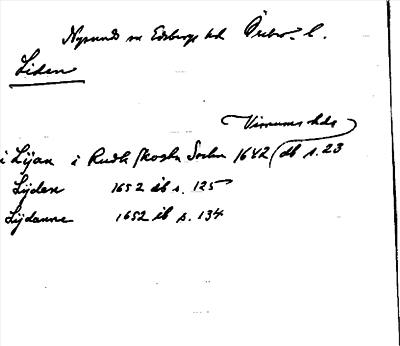 Nysunds sn Edsbergs hd Örebro l.
Liden
Visnums hds
i Lijan i Rudh skoskn Sockn 1642 db s. 23
Lijden 1652 ib s. 125
Lijdanne 1652 ib s. 134